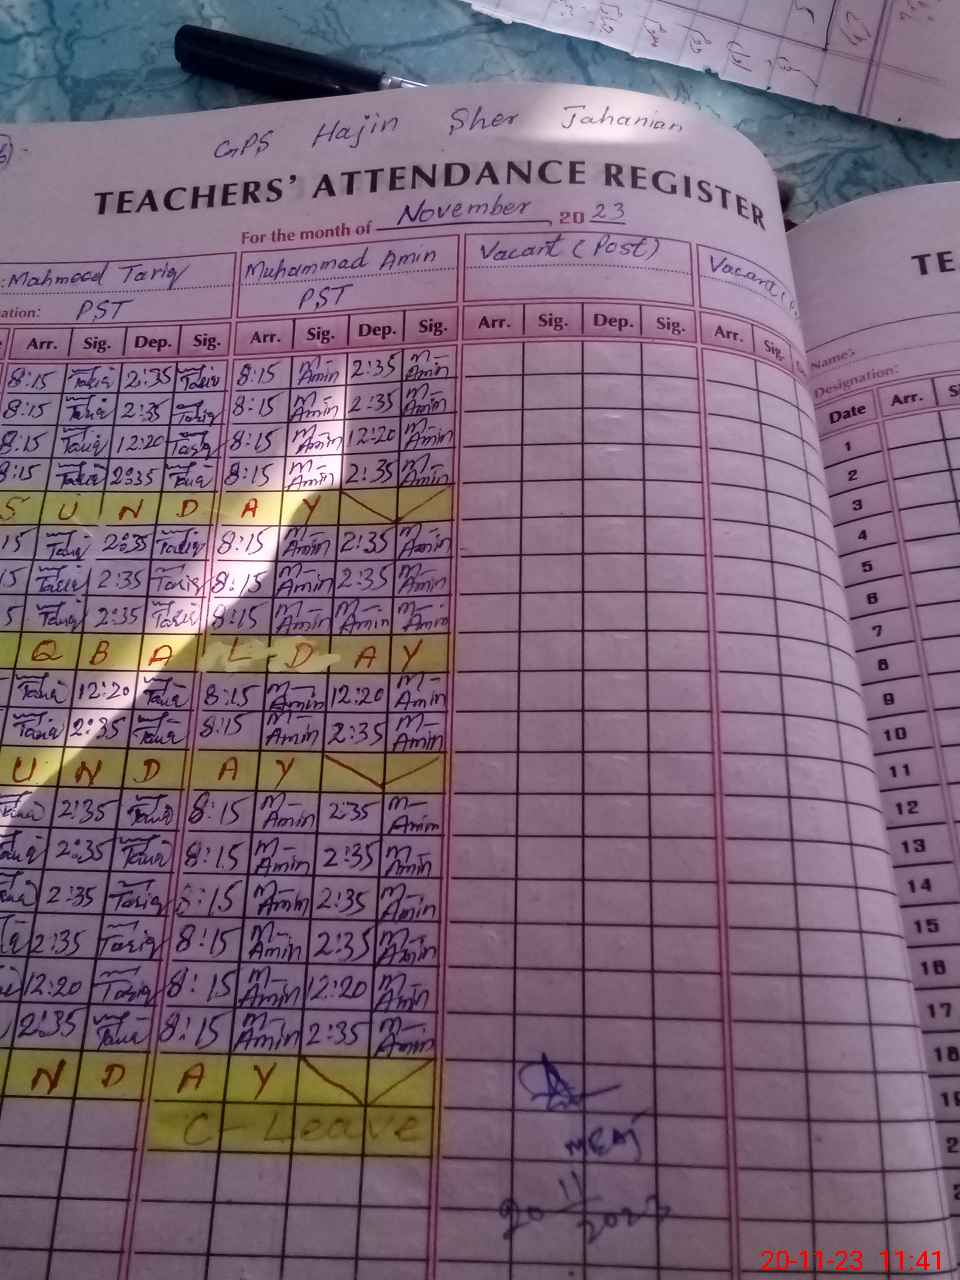 GPS Hajin Sher Jahanian
TEACHERS' ATTENDANCE REGISTER
For the month of November 2023
: Mahmood Tariq Muhammad Amin Vacant (Post) Vacant (
ation: PST PST
Arr. Sig. Dep. Sig. Arr. Sig. Dep. Sig. Arr. Sig. Dep. Sig. Arr. Sig.
8:15 Tariq 2:35 Tariq 8:15 M-Amin 2:35 M-Amin
8:15 Tariq 2:35 Tariq 8:15 M-Amin 2:35 M-Amin
8:15 Tariq 12:20 Tariq 8:15 M-Amin 12:20 M-Amin
8:15 Tariq 2:35 Tariq 8:15 M-Amin 2:35 M-Amin
S U N D A Y
15 Tariq 2:35 Tariq 8:15 M-Amin 2:35 M-Amin
15 Tariq 2:35 Tariq 8:15 M-Amin 2:35 M-Amin
5 Tariq 2:35 Tariq 8:15 M-Amin M-Amin M-Amin
Q B A L - D A Y
Tariq 12:20 Tariq 8:15 M-Amin 12:20 M-Amin
Tariq 2:35 Tariq 8:15 M-Amin 2:35 M-Amin
U N D A Y
2:35 Tariq 8:15 M-Amin 2:35 M-Amin
2:35 Tariq 8:15 M-Amin 2:35 M-Amin
2:35 Tariq 8:15 M-Amin 2:35 M-Amin
2:35 Tariq 8:15 M-Amin 2:35 M-Amin
12:20 Tariq 8:15 M-Amin 12:20 M-Amin
2:35 Tariq 8:15 M-Amin 2:35 M-Amin
N D A Y
C - Leave
20-11-2023
TE
Name:
Designation:
Date Arr. S
1
2
3
4
5
6
7
8
9
10
11
12
13
14
15
16
17
18
19
2
20-11-23 11:41